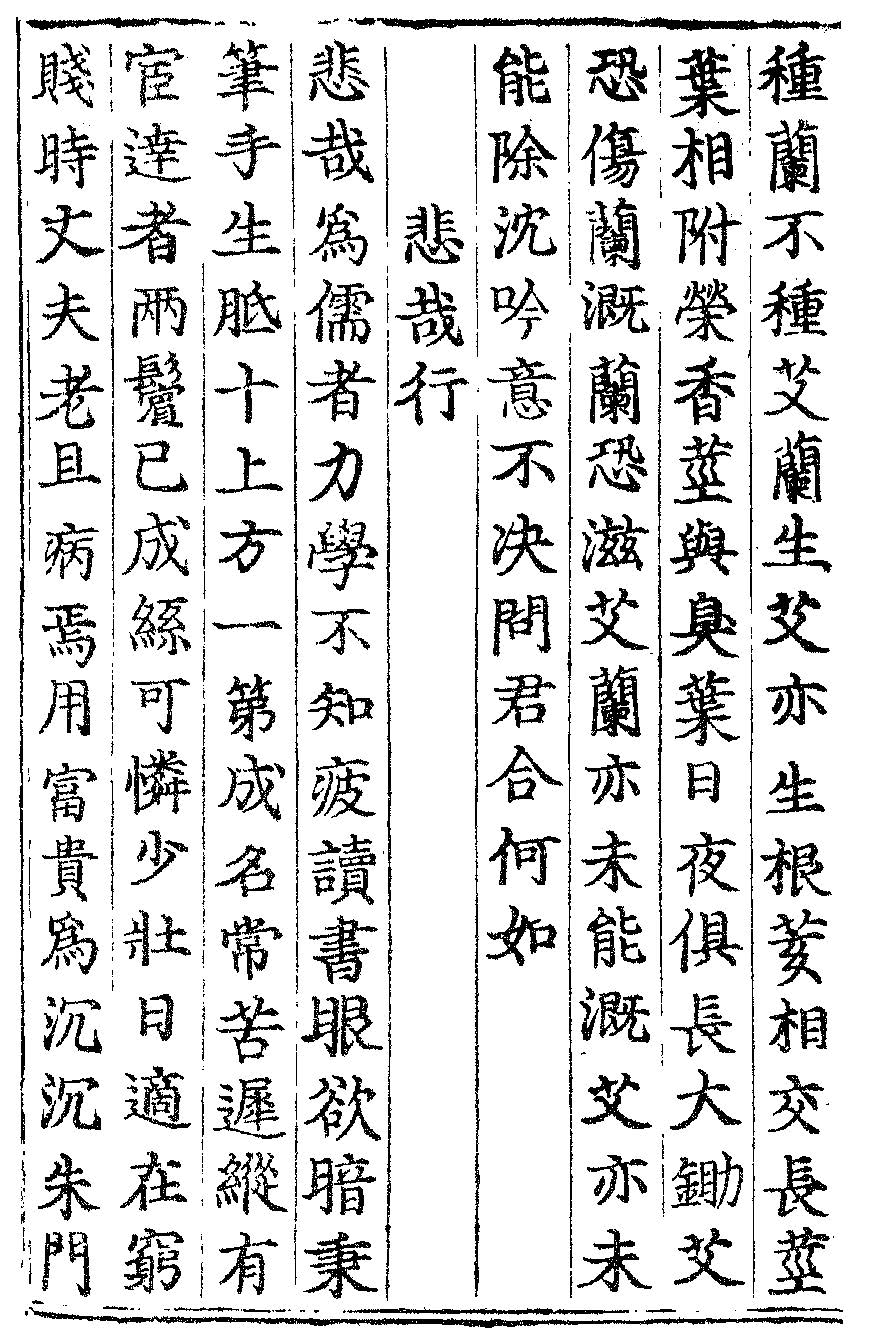 種蘭不種艾蘭生艾亦生根荄相交長莖
葉相附榮香莖與臭葉日夜俱長大鋤艾
恐傷蘭溉蘭恐滋艾蘭亦未能溉艾亦未
能除沈吟意不决問君合何如
悲哉行
悲哉爲儒者力學不知疲讀書眼欲暗秉
筆手生胝十上方一第成名常苦遲縱有
宦達者兩鬢已成絲可憐少壯日適在窮
賤時丈夫老且病焉用富貴爲沉沉朱門